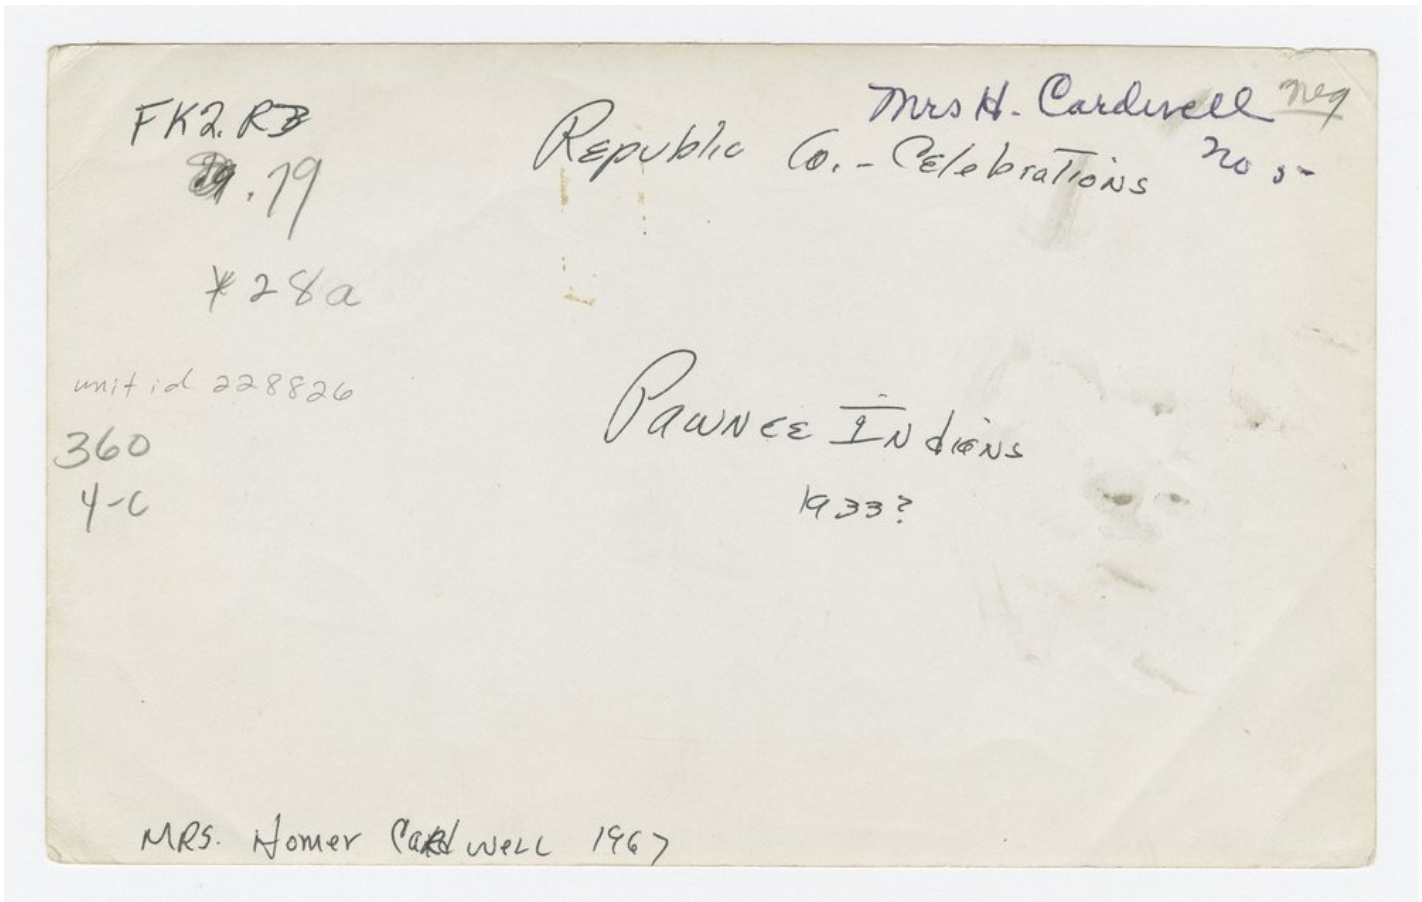 FK2.R3
.79
*28a
unit id 228826
360
4-C
Mrs H. Cardwell neg
No 5-
Republic Co. - Celebrations
Pawnee Indians
1933?
MRS. Homer Cardwell 1967